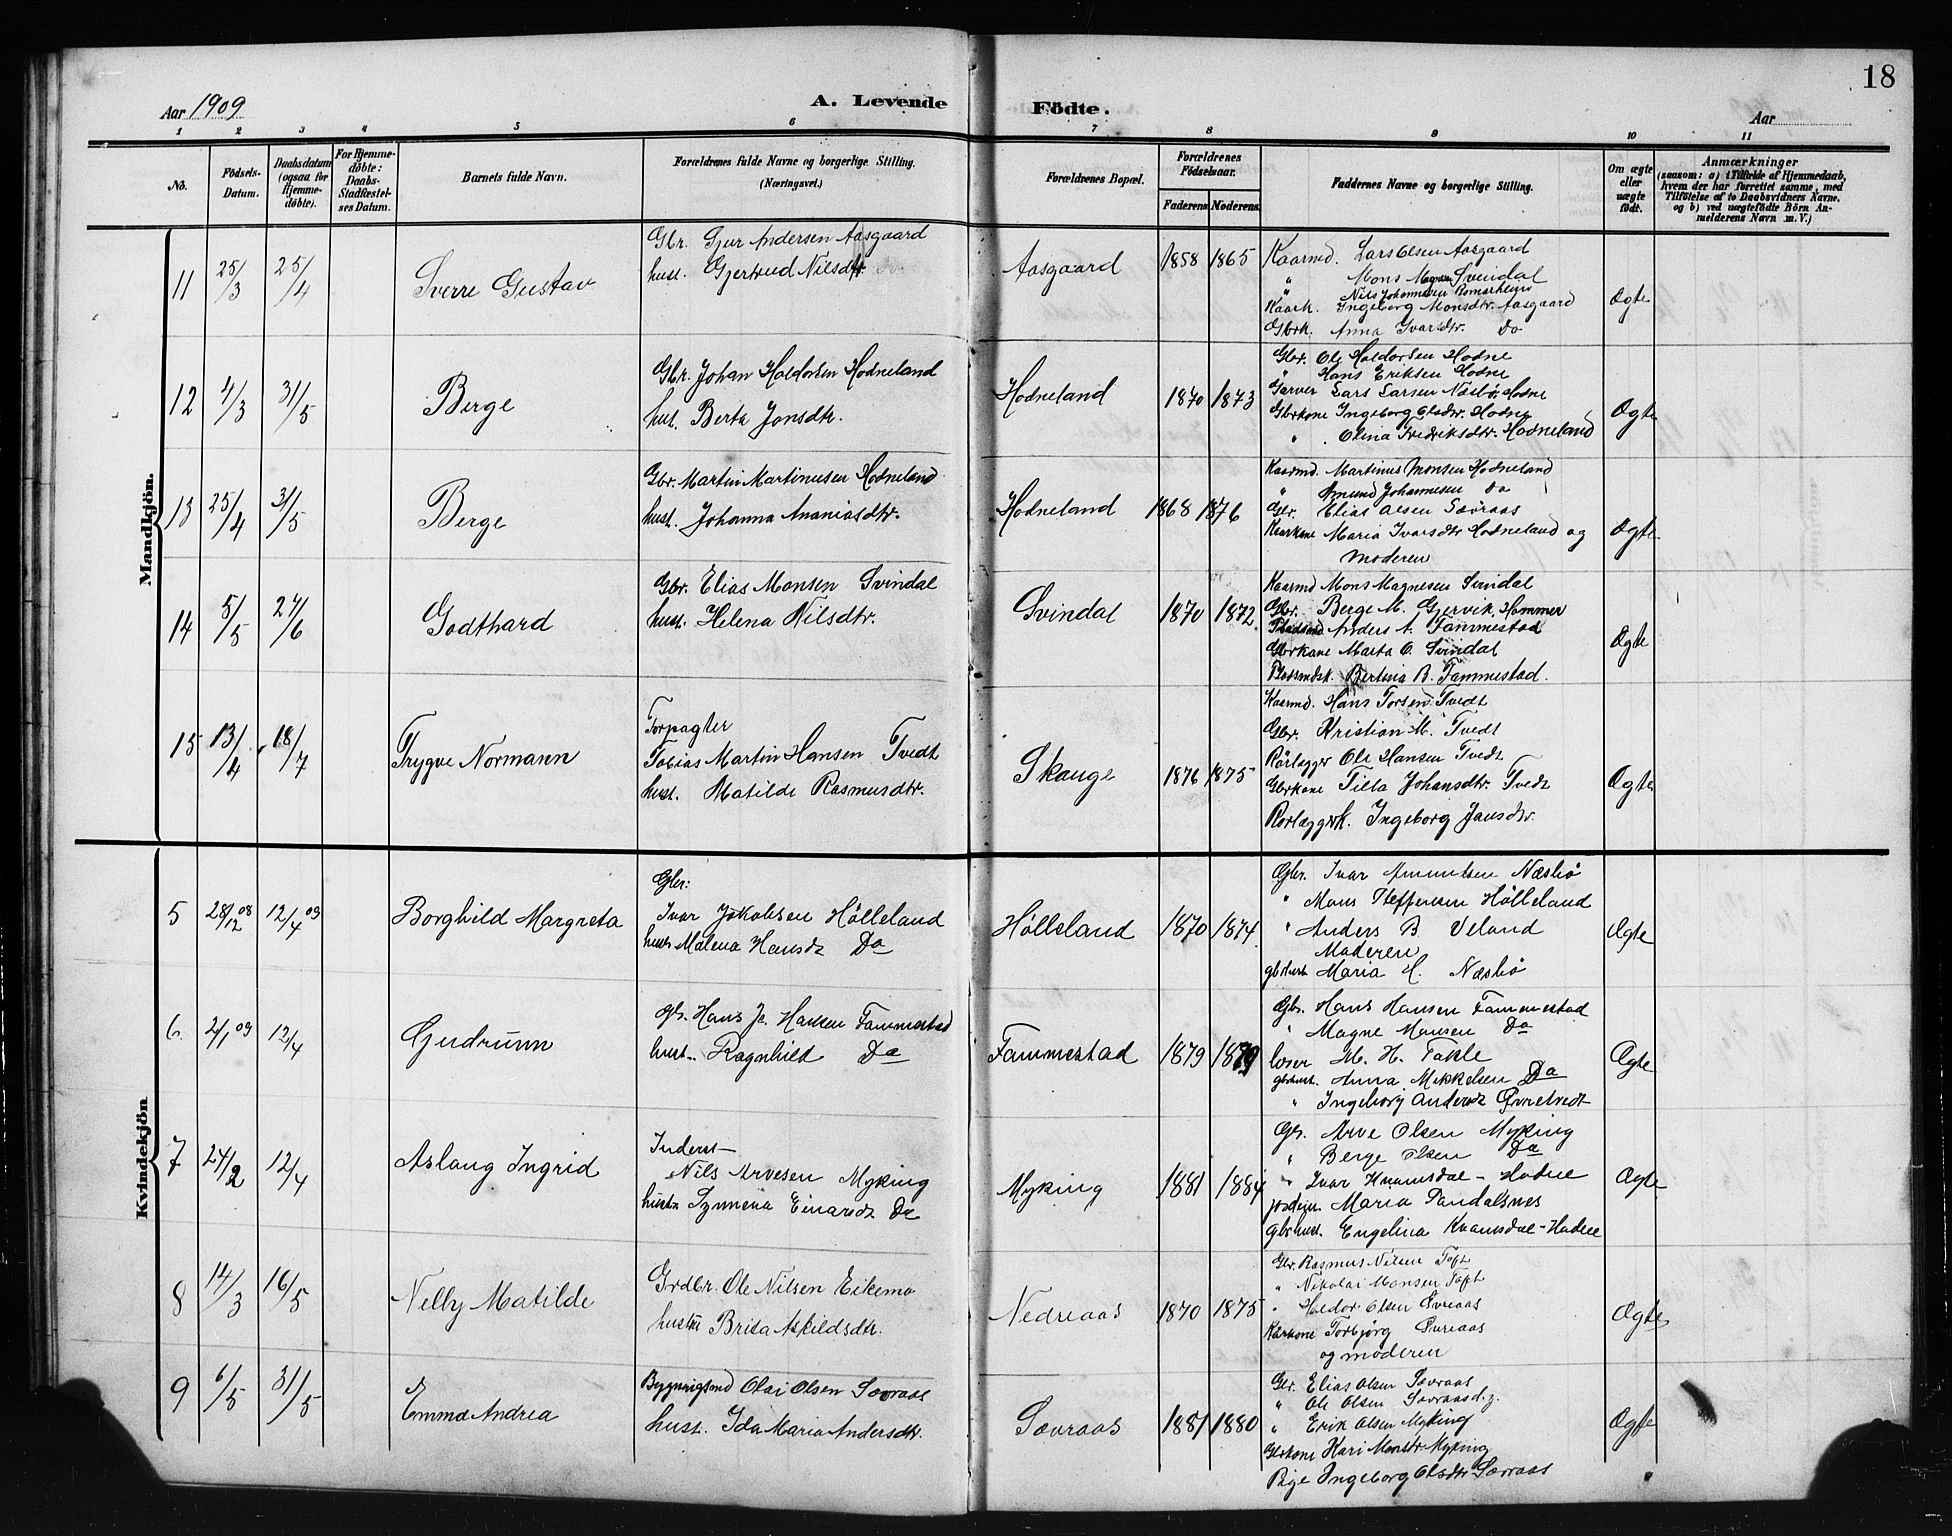 18
Aar 1909
A. Levende Födte.
Aar
1 2 3 4 5 6 7 8 9 10 11
No.
Födsels-Datum.
Daabsdatum (ogsaa for Hjemme-döbte).
For Hjemme-döbte: Daabs-Stadfæstel-ses Datum.
Barnets fulde Navn.
Forældrenes fulde Navne og borgerlige Stilling.
(Næringsvei.)
Forældrenes Bopæl.
Forældrenes Födselsaar.
Faderens Moderens
Faddernes Navne og borgerlige Stilling.
Om ægte eller uægte födt.
Anmærkninger
(saasom: a) i Tilfælde af Hjemmedaab,
hvem der har forrettet samme, med
Tilföielse af to Daabsvidners Navne.
og b) ved uægtefödte Börn An-
melderens Navn m. V.)
Mandkjön.
11 25/3 25/4 Sverre Gustav
Gbr. Gjur Andersen Aasgaard
hust. Gjertrud Nilsdtr.
Aasgaard 1858 1865
Kaarmd. Lars Olsen Aasgaard
" Mons Magnesen Svindal
" Nils Johannesen Romarheim
Kaark. Ingeborg Monsdtr. Aasgaard
Gbrk. Anna Ivarsdtr. Do
Ægte
12 4/3 31/5 Berge
Gbr. Johan Haldorsen Hodneland
hust. Berta Jonsdtr.
Hodneland 1870 1873
Gbr. Ole Haldorsen Hodne
" Hans Eriksen Hodne
Garver Lars Larsen Næsbø, Hodne
Gbrkone Ingeborg Olsdtr. Hodne
" Olina Fredriksdtr. Hodneland
Ægte
13 25/4 31/5 Berge
Gbr. Martin Martinusen Hodneland
hust. Johanna Ananiasdtr.
Hodneland 1868 1876
Kaarmd. Martinus Monsen Hodneland
" Amund Johannesen Do
Gbr. Elias Olsen Sævraas
Kaarkone Maria Ivarsdtr Hodneland og
moderen
Ægte
14 5/5 27/6 Godthard
Gbr. Elias Monsen Svindal
hust. Helena Nilsdtr.
Svindal 1870 1872
Kaarmd Mons Magnesen Svindal
Gbr. Berge M. Gjervik, Hammer
Anders A. Fammestad
Gbrkone Marta O. Svindal
Bertina B. Fammestad.
Ægte
15 13/4 18/7 Trygve Normann
Forpagter
Tobias Martin Hansen Tvedt
hust. Matilde Rasmusdtr.
Skauge 1876 1875
Kaarmd. Hans Torsen Tvedt
Gbr. Kristian M. Tvedt
Rörlegger Ole Hansen Tvedt
Gbrkone Tilla Johansdtr. Tvedt
Rörlæggerk. Ingeborg Jansdtr.
Ægte
Kvindekjön
5 28/12 08 12/4 09 Borghild Margreta
Gbr:
Ivar Jakobsen Hølleland
hust. Malena Hansd. Do
Hølleland 1870 1874
Gbr. Ivar Amundsen Næsbø
" Mons Steffensen Hølleland
" Anders B Veland
Moderen
gbrhust Maria H. Næsbø
Ægte
6 2/1 09 12/4 Gudrunn
Gbr. Hans Ja. Hansen Fammestad
hust. Ragnhild Do
Fammestad 1879 1879
Gbr. Hans Hansen Fammestad
" Magne Monsen Do
Læser M. H. Takle
gbrhust. Anna Mikkelsen Do
" Ingeborg Andersd. Øvretvedt
Ægte
7 24/2 12/4 Aslaug Ingrid
Inderst
Nils Arvesen Myking
hust. Synneva Einarsd. Do
Myking 1881 1884
Gbr. Arve Olsen Myking
" Berge Olsen Do
" Ivar Kvamsdal - Hodne
Maria Sandalsnes
Gbrhust. Engelina Kvamsdal - Hodne
Ægte
8 14/3 16/5 Nelly Matilde
Grdbr. Ole Nilsen Eikemo
hustru Brita Askildsdtr.
Nedreaas 1870 1875
Gbr. Rasmus Nilsen Toft
" Nikolai Monsen Toft
" Haldor Olsen Øvreaas
Kårkone Torbjørg Øvreaas
og moderen
Ægte
9 6/5 31/5 Emma Andrea
Bygningsmd Olai Olsen Sævraas
hust. Ida Maria Andersdtr.
Sævraas 1881 1880
Gbr. Elias Olsen Sævraas
" Ole Olsen Sævraas d.y.
" Erik Olsen Myking
Gbrkone Kari Monsdtr Myking
Pige Ingeborg Olsdtr Sævraas
Ægte